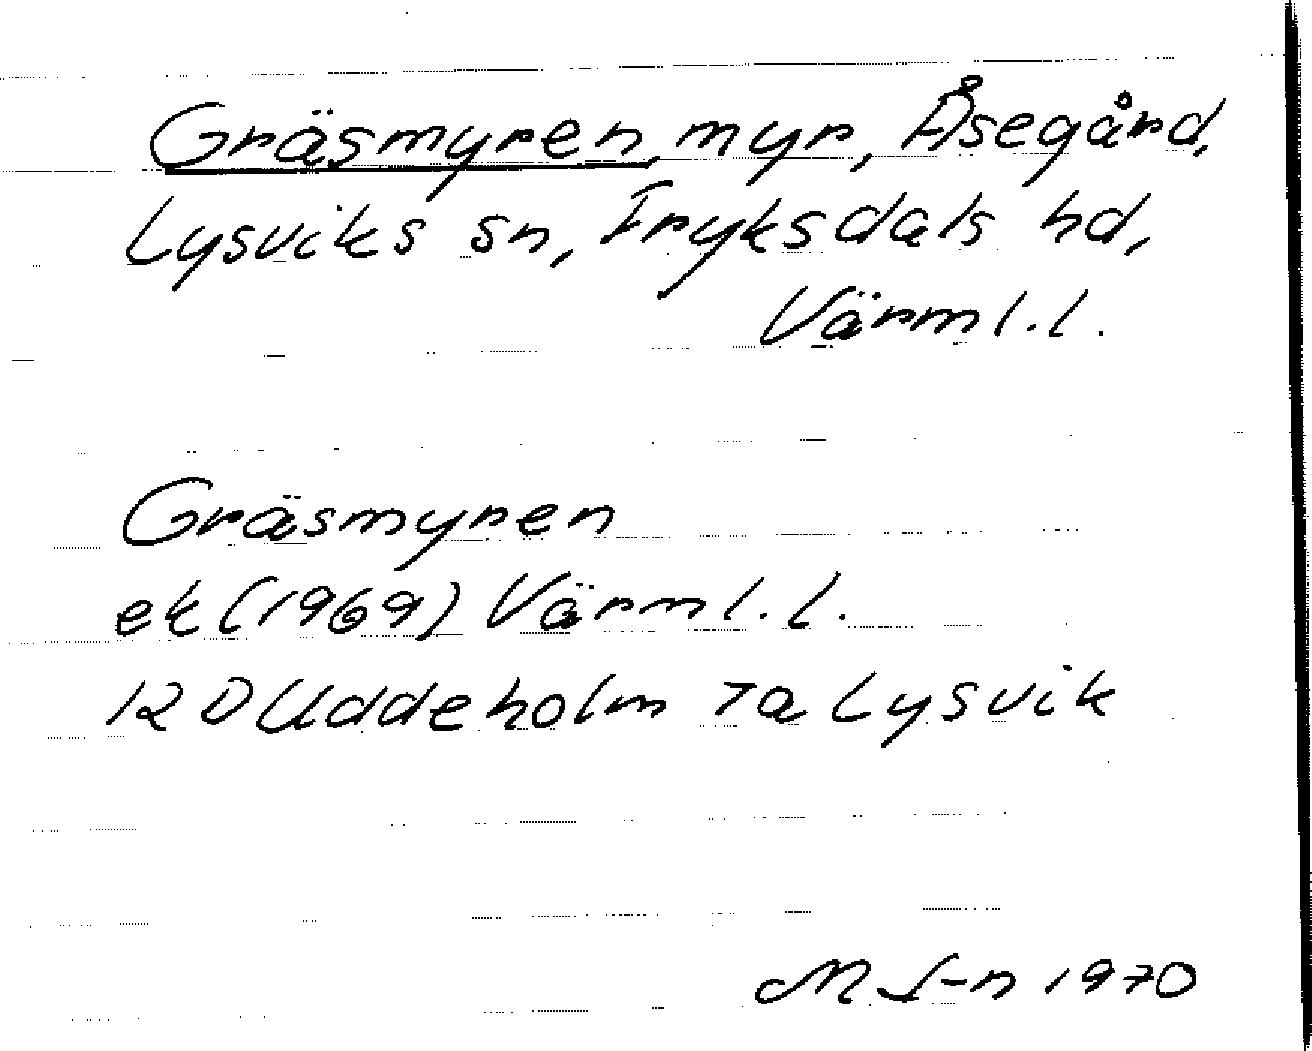 Gräsmyren, myr, Åsegård,
Lysviks sn, Fryksdals hd,
Värml. l.
Gräsmyren
ek (1969) Värml. l.
12 D Uddeholm 7a Lysvik
M S-n 1970